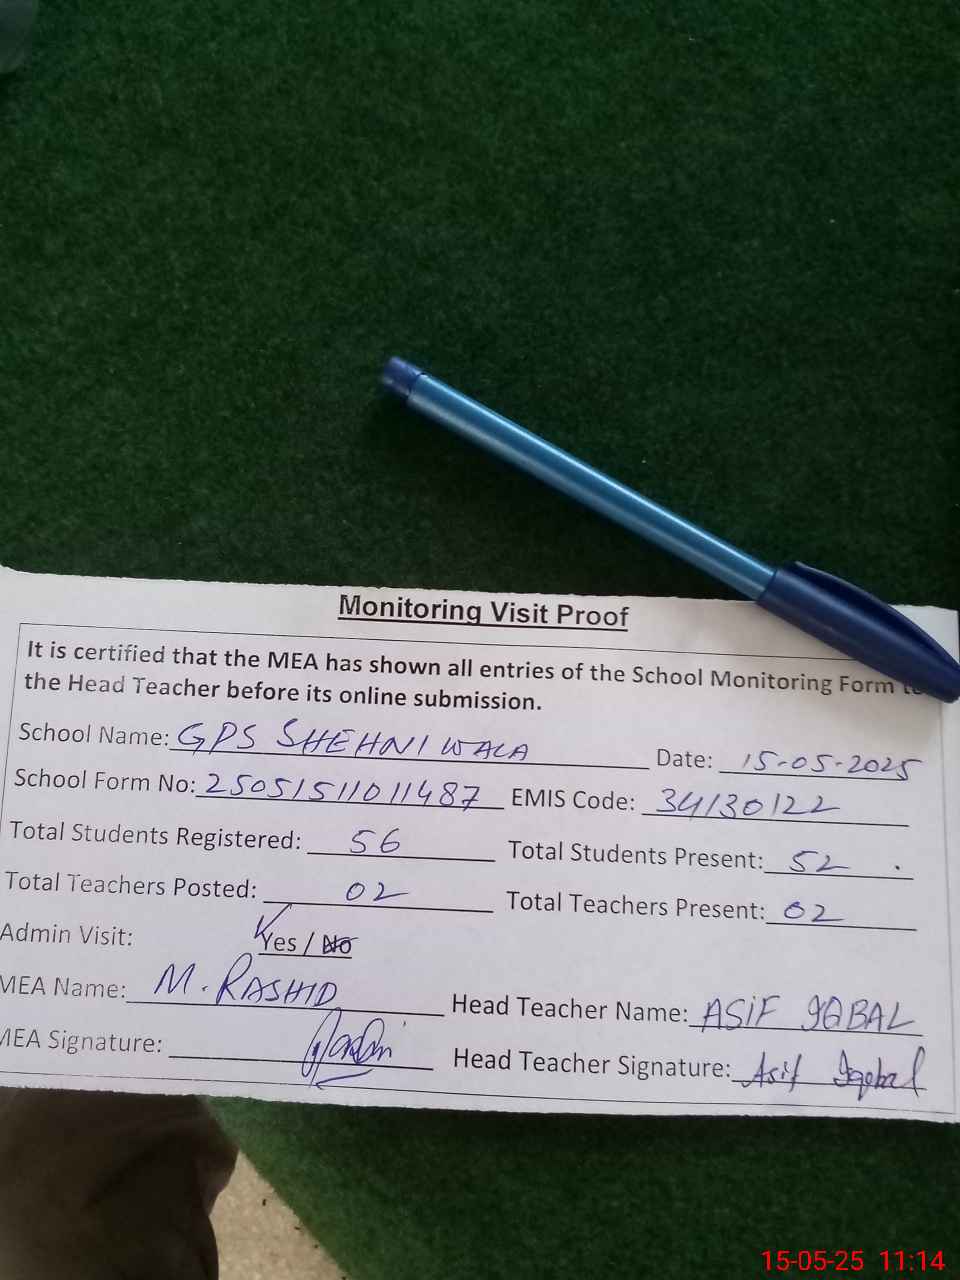 Monitoring Visit Proof
It is certified that the MEA has shown all entries of the School Monitoring Form to
the Head Teacher before its online submission.
School Name: GPS SHEHNIWALA Date: 15-05-2025
School Form No: 25051511011487 EMIS Code: 34130122
Total Students Registered: 56 Total Students Present: 52
Total Teachers Posted: 02 Total Teachers Present: 02
Admin Visit: Yes / No
MEA Name: M. RASHID Head Teacher Name: ASIF IQBAL
MEA Signature: Head Teacher Signature: Asif Iqbal
15-05-25 11:14